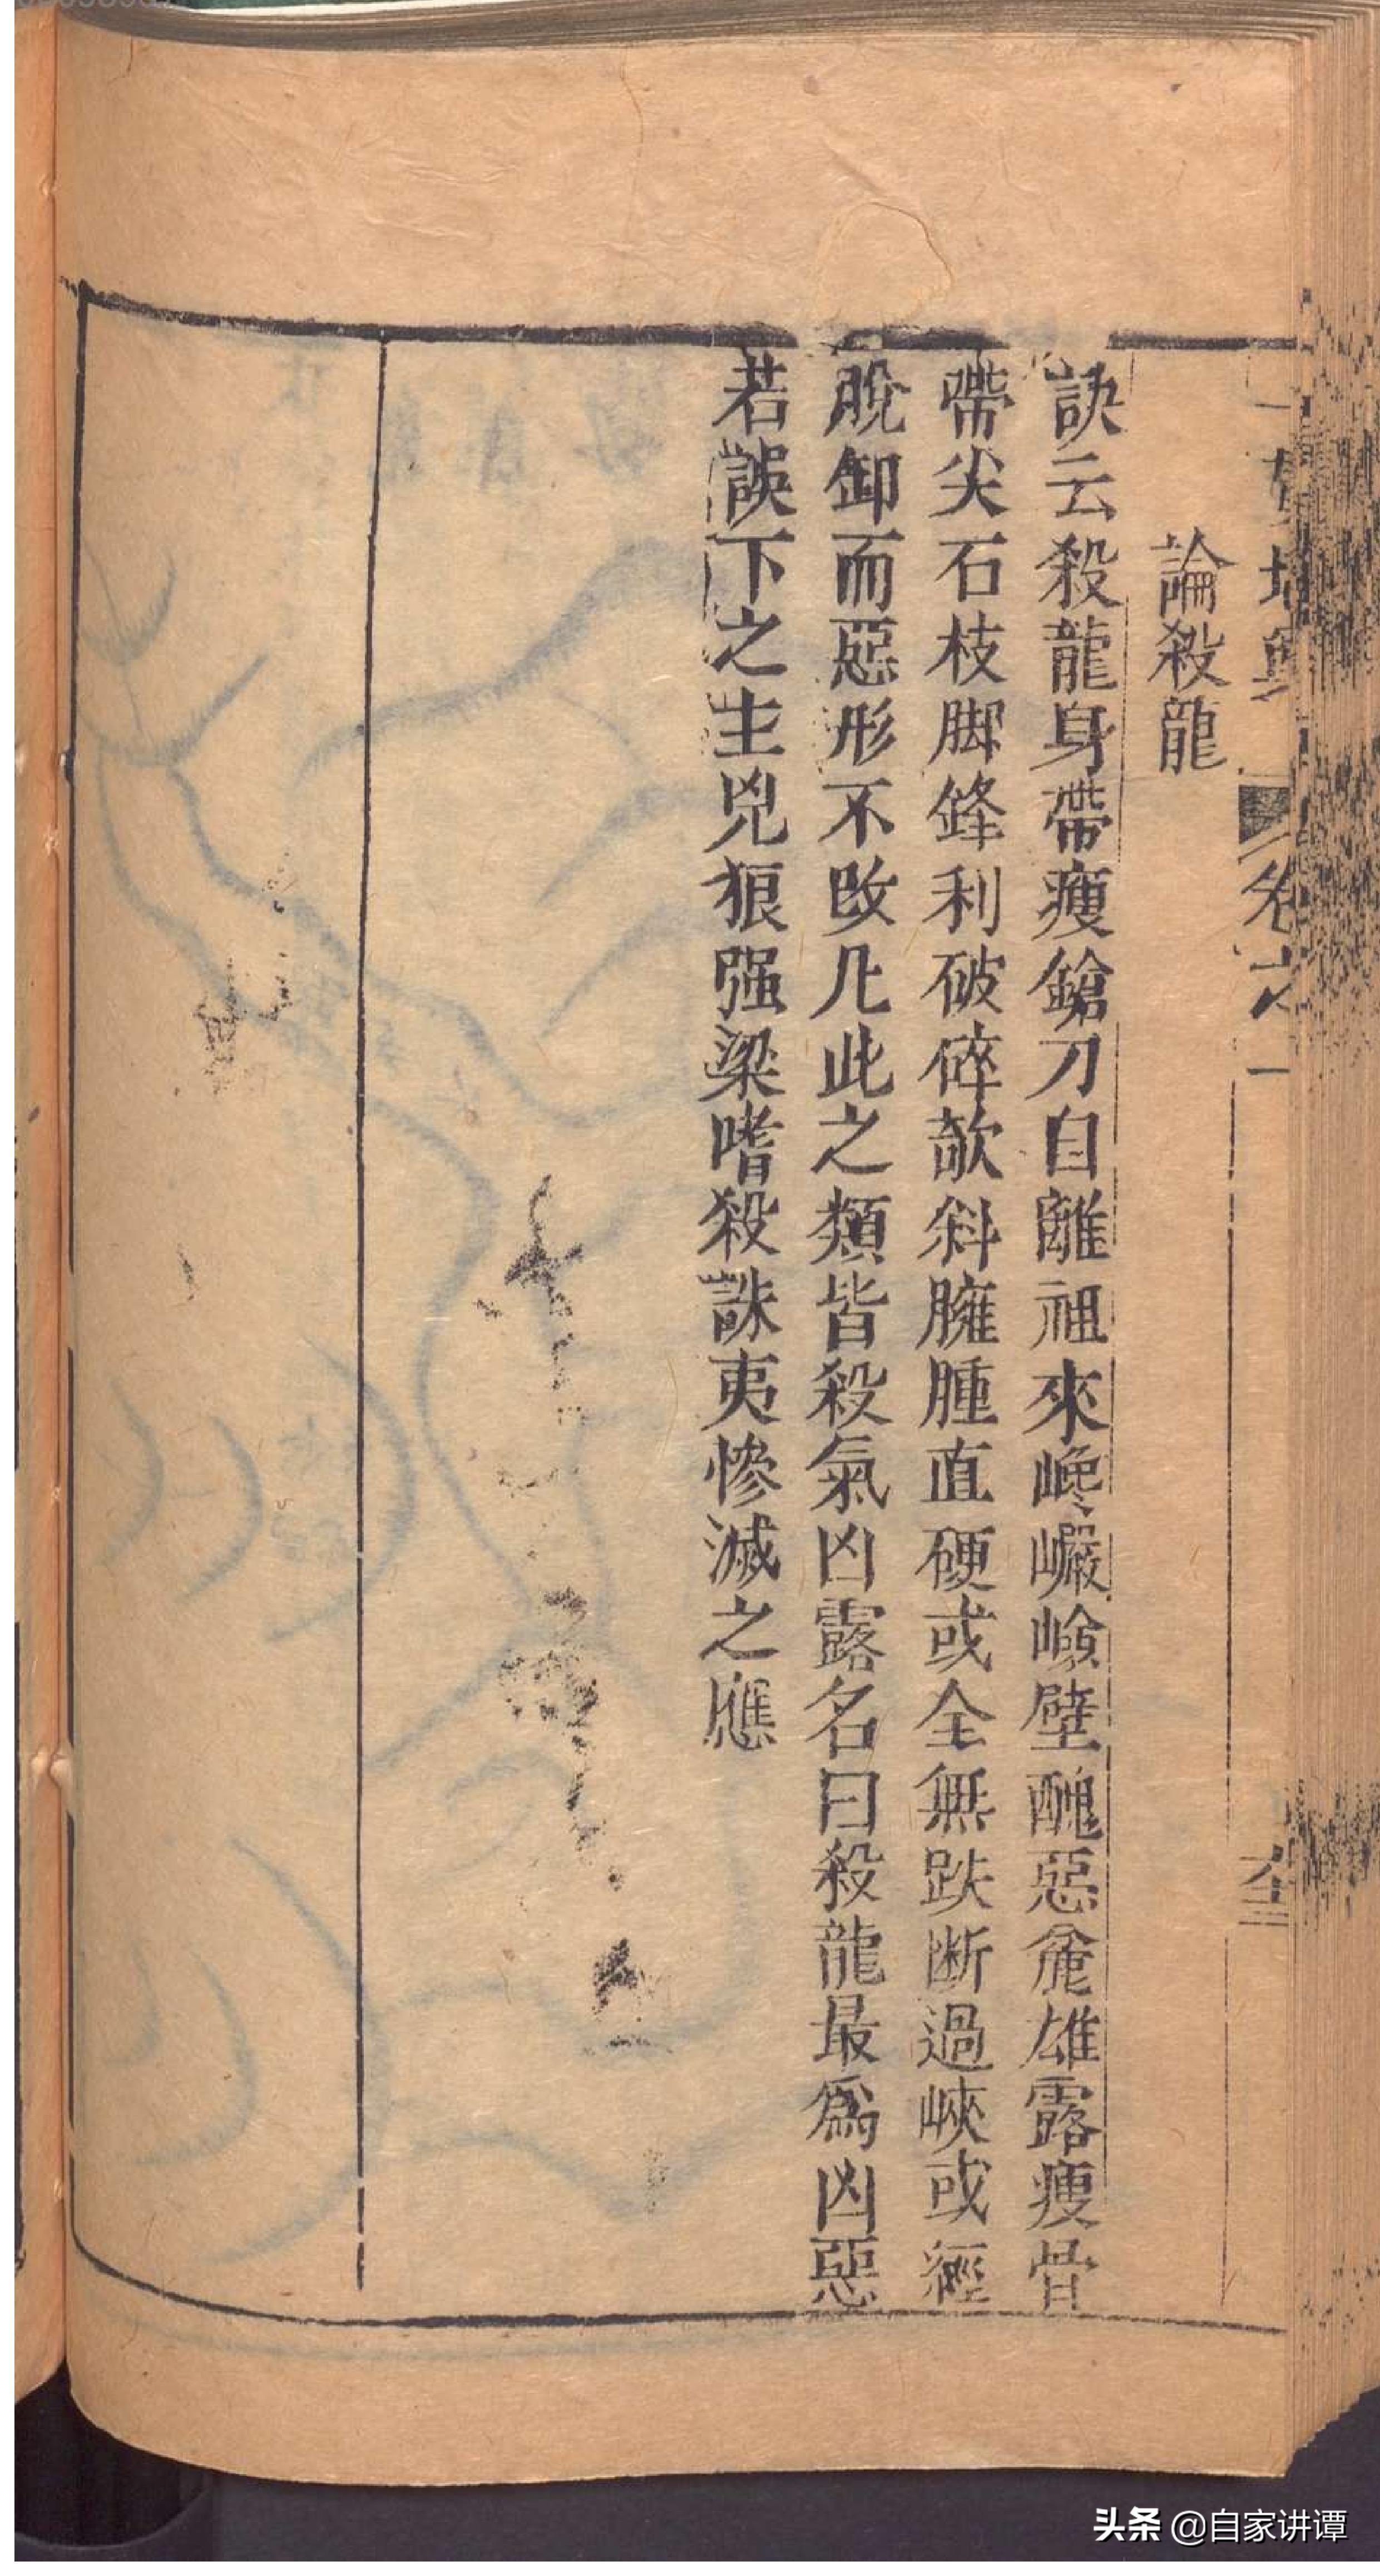 論殺龍
訣云殺龍身帶瘦鎗刀自離祖來巉巖嶮壁醜惡麄雄露瘦骨
帶尖石枝脚鋒利破碎欹斜臃腫直硬或全無跌断過峽或經
脫卸而惡形不改凡此之類皆殺氣凶露名曰殺龍最爲凶惡
若誤下之主兇狼强梁嗜殺誅夷慘滅之應
卷六
头条 @自家讲谭